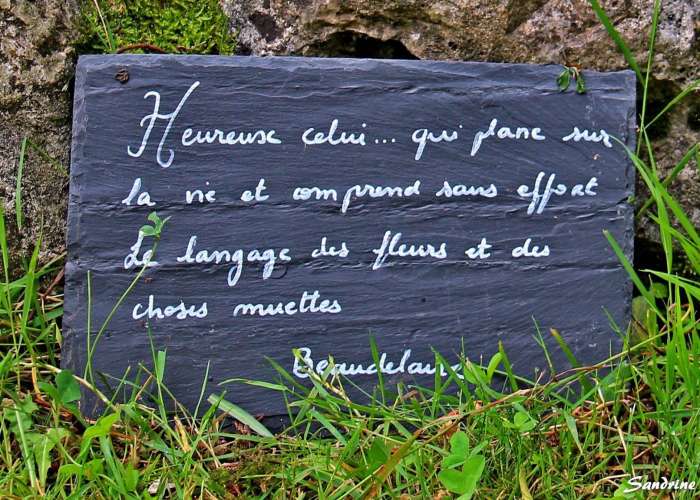 Heureux celui... qui plane sur
la vie et comprend sans effort
Le langage des fleurs et des
choses muettes
Beaudelaire
Sandrine